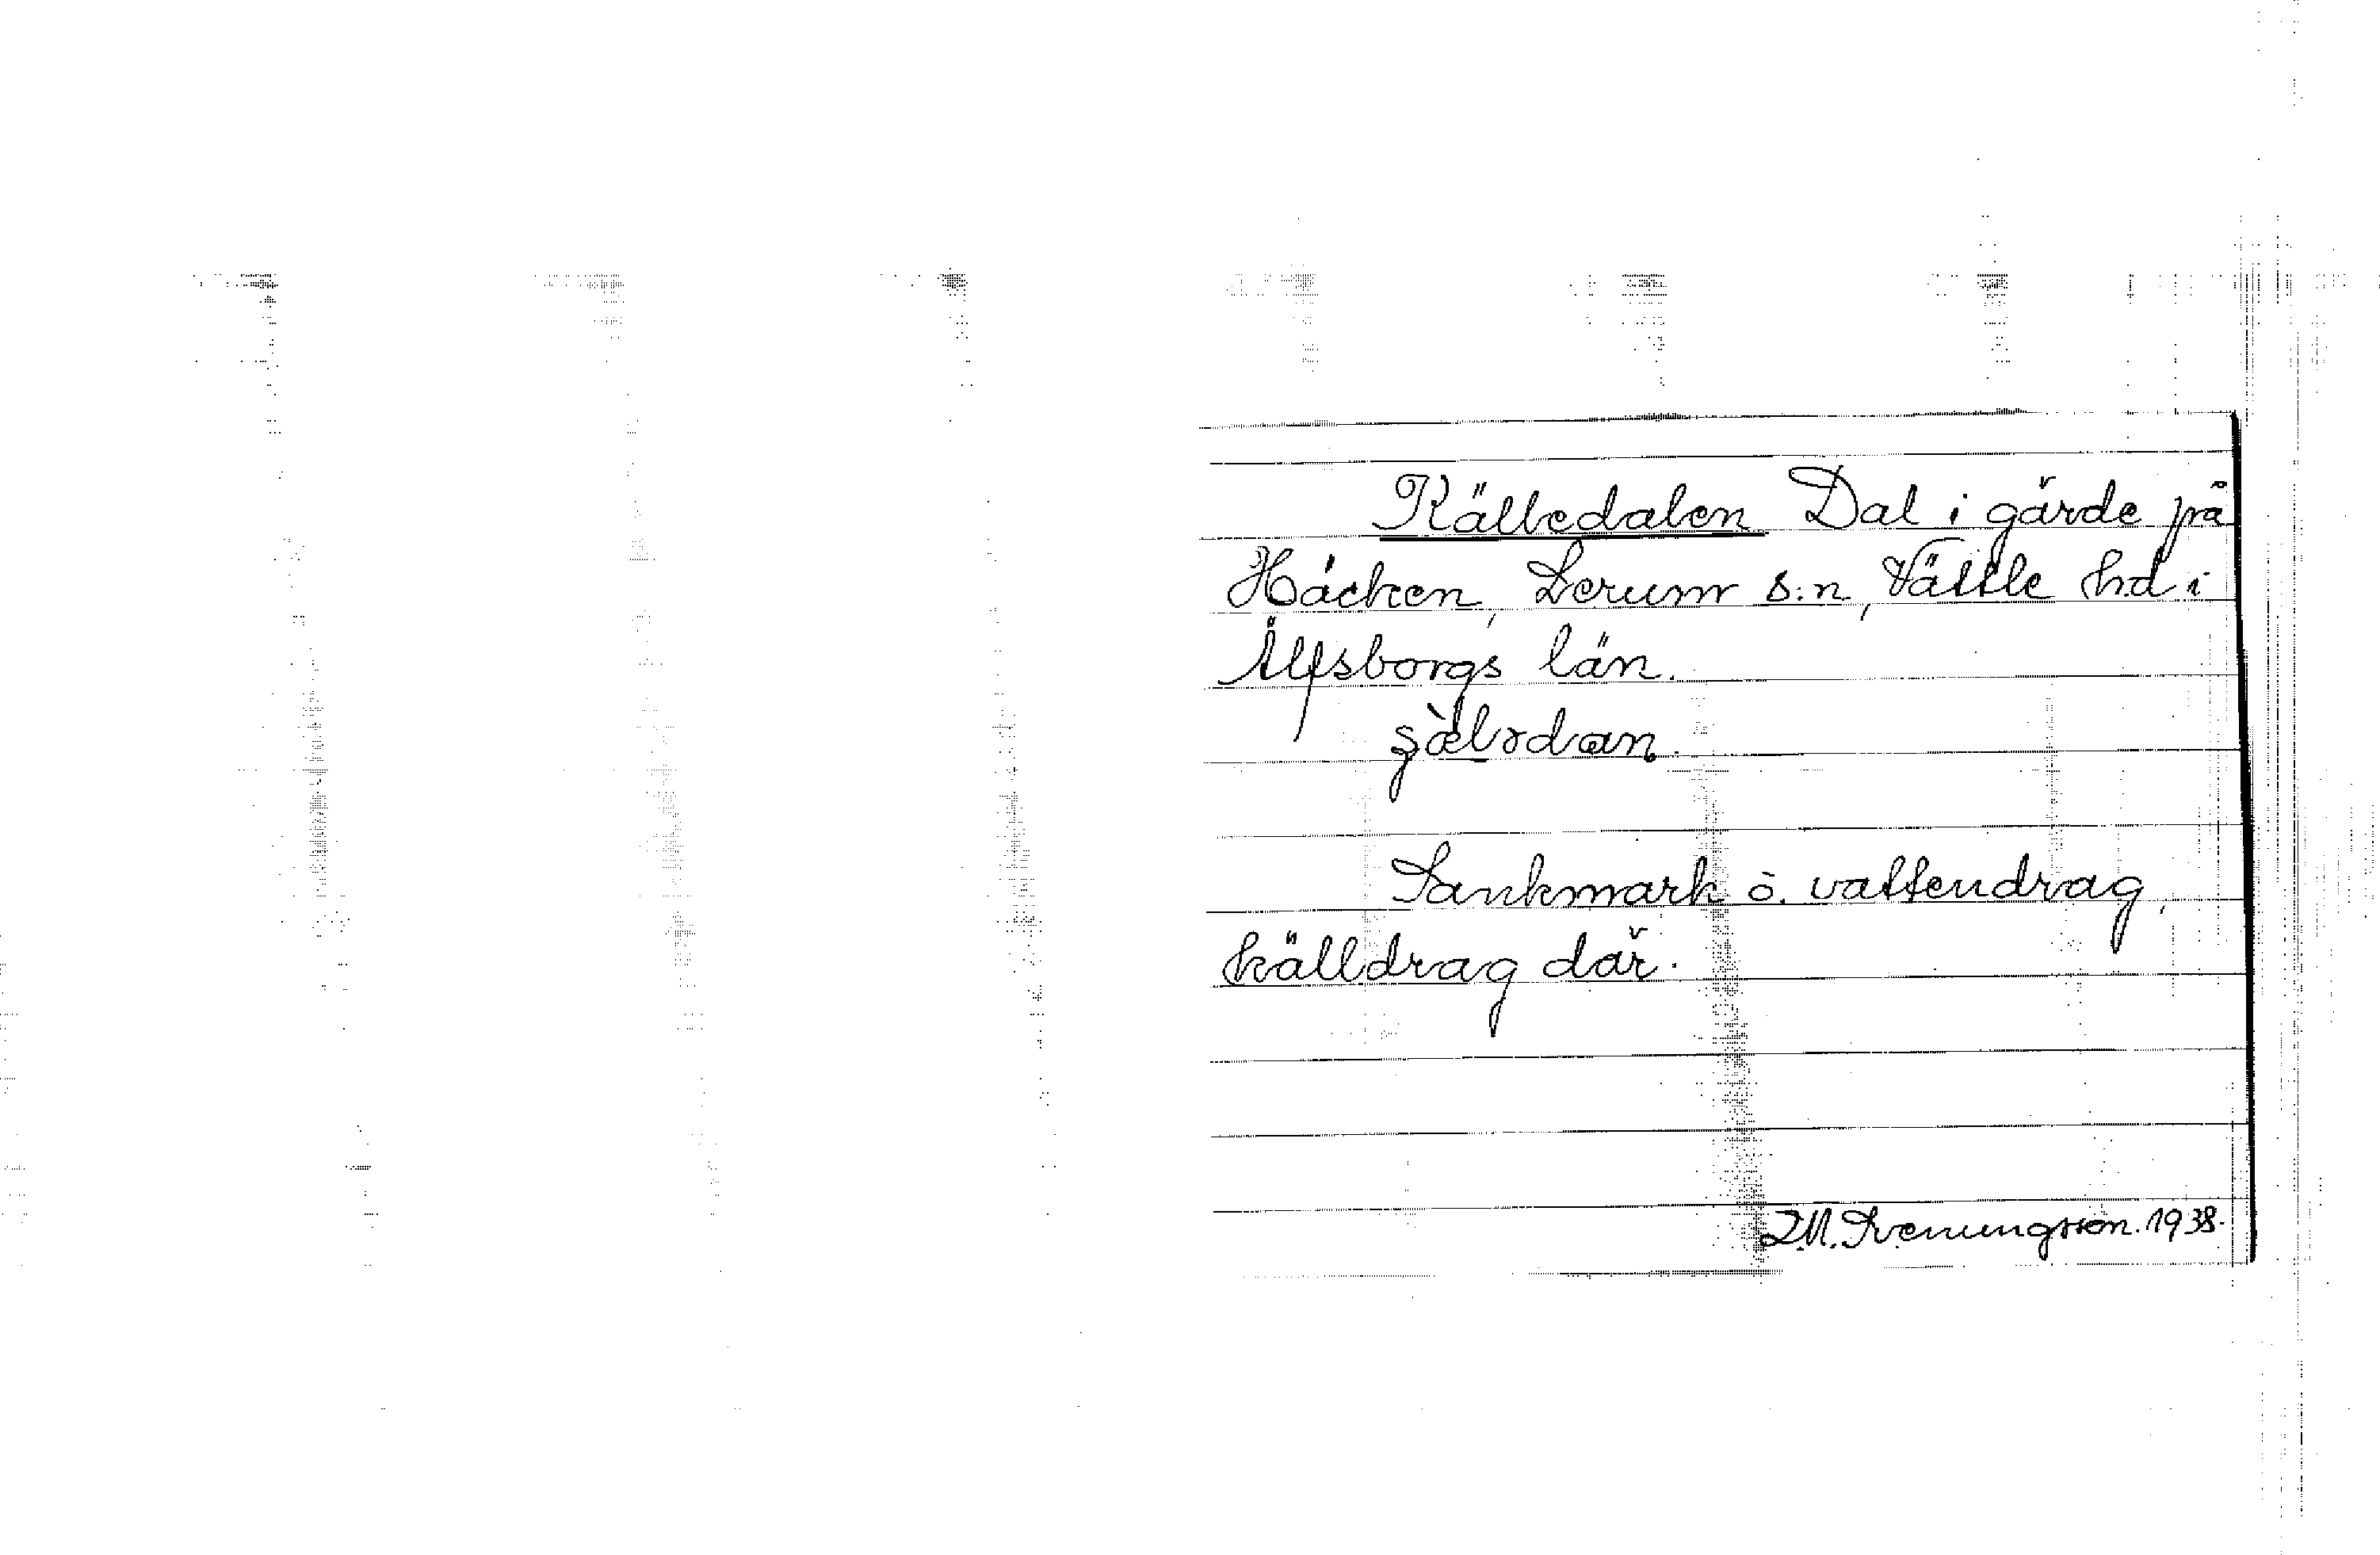 Källedalen Dal i gärde på
Häcken, Lerum s:n, Vättle hd i
Älfsborgs län.
Sankmark o. vattendrag,
källdrag där.
M. Svenungsson. 1938.